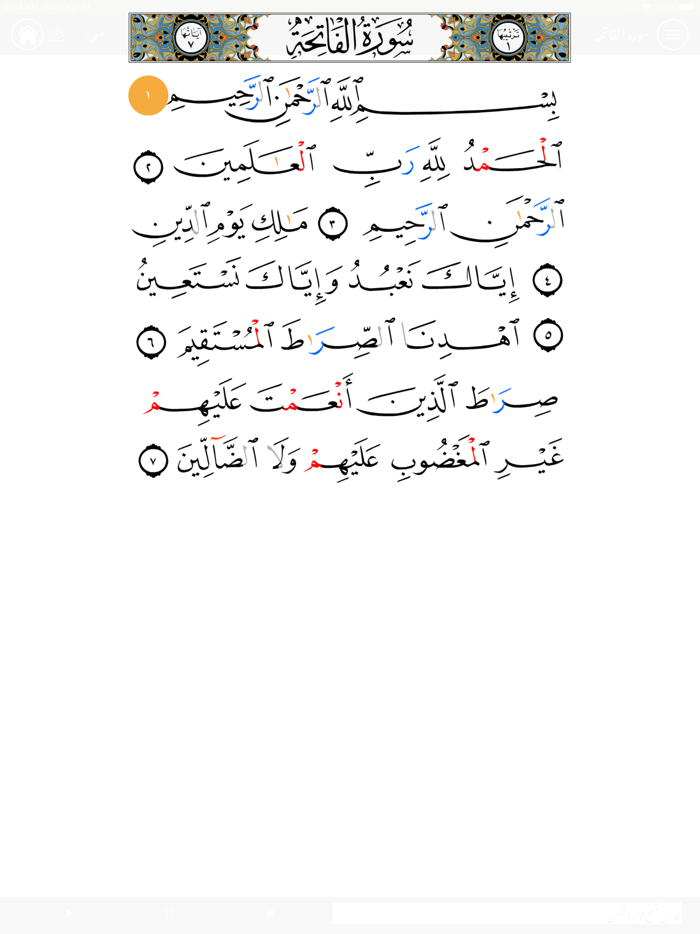 سورة الفاتحة
ترتيبها ١
آياتها ٧
بِسْمِ ٱللَّهِ ٱلرَّحْمَٰنِ ٱلرَّحِيمِ ١
ٱلْحَمْدُ لِلَّهِ رَبِّ ٱلْعَٰلَمِينَ ٢
ٱلرَّحْمَٰنِ ٱلرَّحِيمِ ٣ مَٰلِكِ يَوْمِ ٱلدِّينِ
٤ إِيَّاكَ نَعْبُدُ وَإِيَّاكَ نَسْتَعِينُ
٥ ٱهْدِنَا ٱلصِّرَٰطَ ٱلْمُسْتَقِيمَ ٦
صِرَٰطَ ٱلَّذِينَ أَنْعَمْتَ عَلَيْهِمْ
غَيْرِ ٱلْمَغْضُوبِ عَلَيْهِمْ وَلَا ٱلضَّآلِّينَ ٧